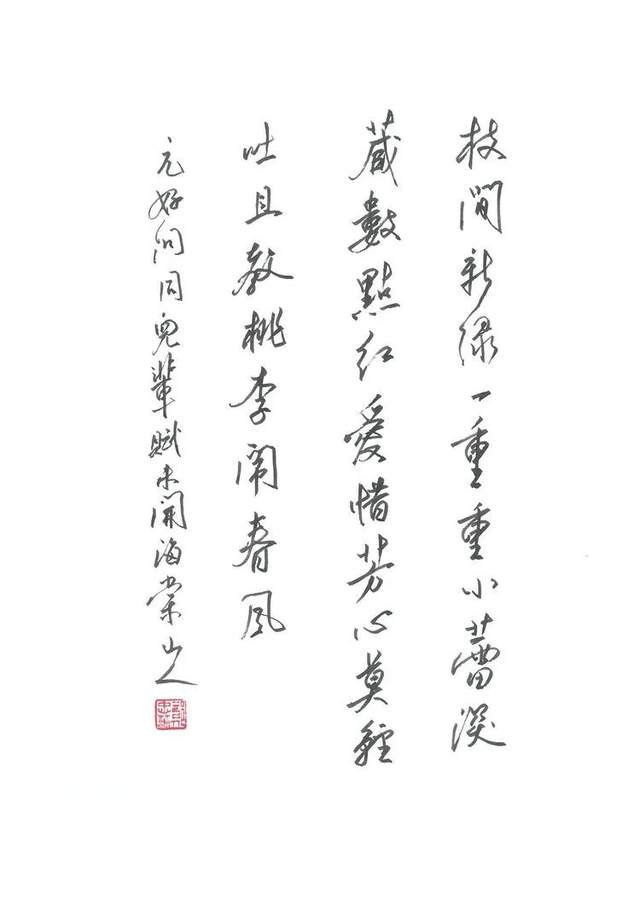 枝間新綠一重重小蕾深
藏數點紅愛惜芳心莫輕
吐且教桃李鬧春風
元好問同兒輩賦未開海棠山人